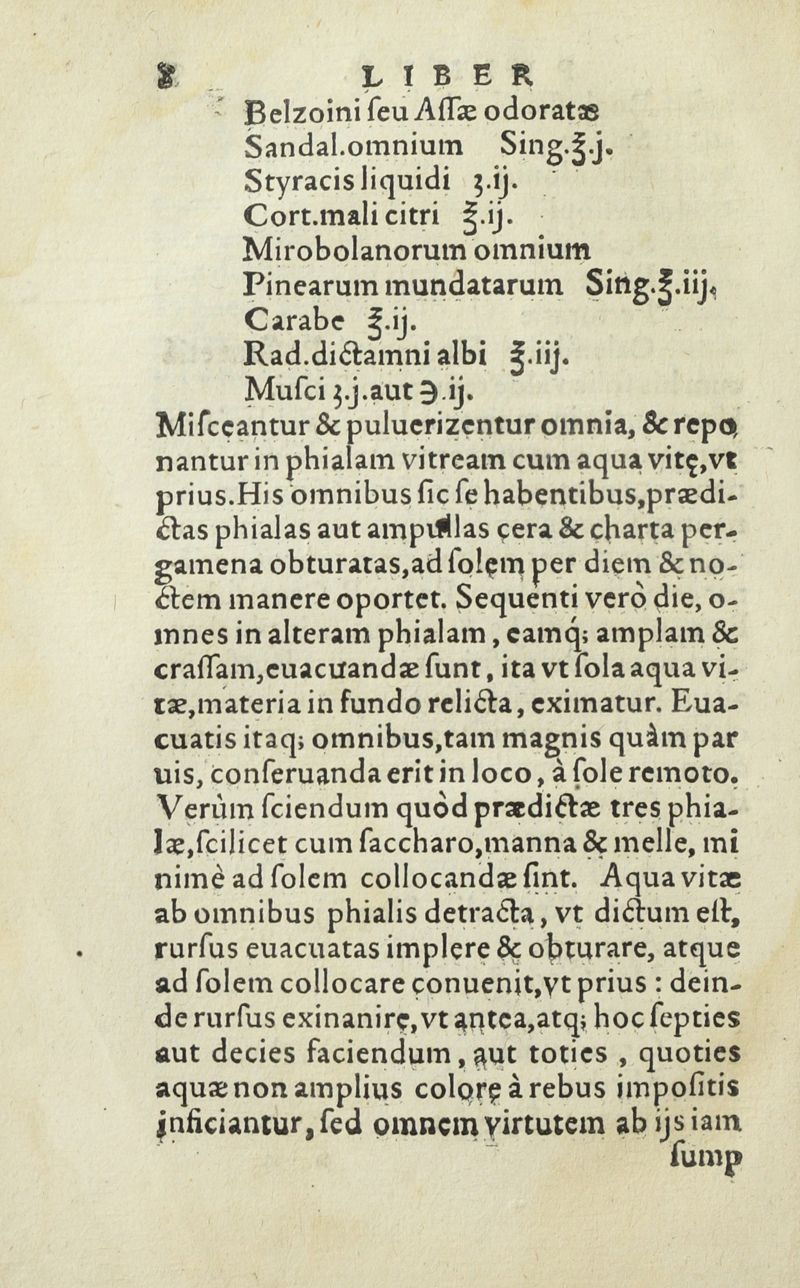 8 LIBER
Belzoini ſeu Aſſæ odoratæ
Sandal.omnium Sing.℥.j.
Styracis liquidi ʒ.ij.
Cort.mali citri ℥.ij.
Mirobolanorum omnium
Pinearum mundatarum Sing.℥.iij.
Carabe ℥.ij.
Rad.dictamni albi ℥.iij.
Muſci ʒ.j.aut ℈.ij.
Miſceantur & puluerizentur omnia, & repo
nantur in phialam vitream cum aqua vitę,vt
prius.His omnibus ſic ſe habentibus,prædi-
ctas phialas aut ampullas cera & charta per-
gamena obturatas,ad ſolem per diem & no-
ctem manere oportet. Sequenti verò die, o-
mnes in alteram phialam, eamq; amplam &
craſſam,euacuandæ ſunt, ita vt ſola aqua vi-
tæ,materia in fundo relicta, eximatur. Eua-
cuatis itaq; omnibus,tam magnis quàm par
uis, conſeruanda erit in loco, à ſole remoto.
Verùm ſciendum quòd prædictæ tres phia-
læ,ſcilicet cum ſaccharo,manna & melle, mi
nimè ad ſolem collocandæ ſint. Aqua vitæ
ab omnibus phialis detracta, vt dictum eſt,
rurſus euacuatas implere & obturare, atque
ad ſolem collocare conuenit,vt prius : dein-
de rurſus exinanire,vt antea,atq; hoc ſepties
aut decies faciendum, aut toties , quoties
aquæ non amplius colore à rebus impoſitis
inficiantur, ſed omnem virtutem ab ijs iam
ſump